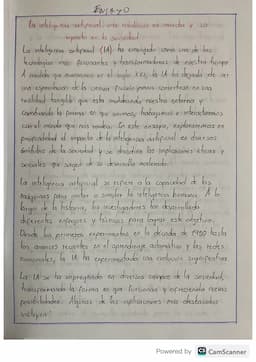 ENSAYO
La inteligencia artificial: una revolución en marcha y su
impacto en la sociedad
La inteligencia artificial (IA) ha emergido como una de las
tecnologías más fascinantes y transformadoras de nuestro tiempo
A medida que avanzamos en el siglo XXI, la IA ha dejado de ser
una de la ciencia ficción para convertirse en una
realidad tangible que está moldeando nuestro entorno y
cambiando la forma en que vivimos, trabajamos e interactuamos
con el mundo que nos rodea. En este ensayo, exploraremos en
profundidad el impacto de la inteligencia artificial en diversos
ámbitos de la sociedad y se discutirán las implicaciones éticas y
sociales que surgen de su desarrollo acelerado.
La inteligencia artificial se refiere a la capacidad de las
máquinas para imitar o simular la inteligencia humana. A lo
largo de la historia, los investigadores han desarrollado
diferentes enfoques y técnicas para lograr este objetivo.
Desde los primeros experimentos en la década de 1950 hasta
los avances recientes en el aprendizaje automático y las redes
neuronales, la IA ha experimentado una evolución significativa.
La IA se ha impregnado en diversos campos de la sociedad,
transformando la forma en que funcionan y ofreciendo nuevas
posibilidades. Algunas de las aplicaciones más destacadas
incluyen:
Powered by CS CamScanner